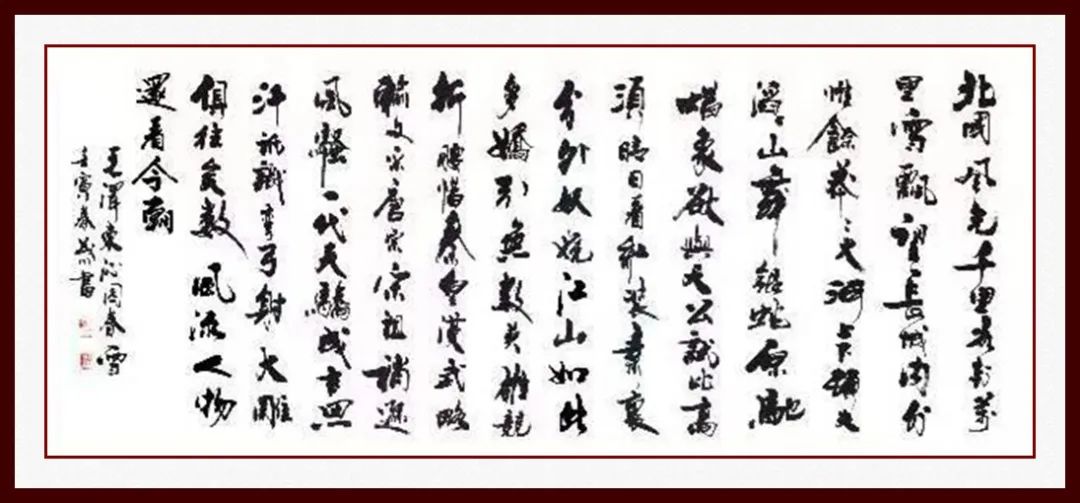 北國風光千里冰封萬
里雪飄望長城內外
惟餘莽〻大河上下頓失
滔〻山舞銀蛇原馳
蠟象欲與天公試比高
須晴日看紅裝素裹
分外妖嬈江山如此
多嬌引無數英雄競
折腰惜秦皇漢武略
輸文采唐宗宋祖稍遜
風騷一代天驕成吉思
汗祇識彎弓射大雕
俱往矣數風流人物
還看今朝
毛澤東沁園春雪
壬寅春書